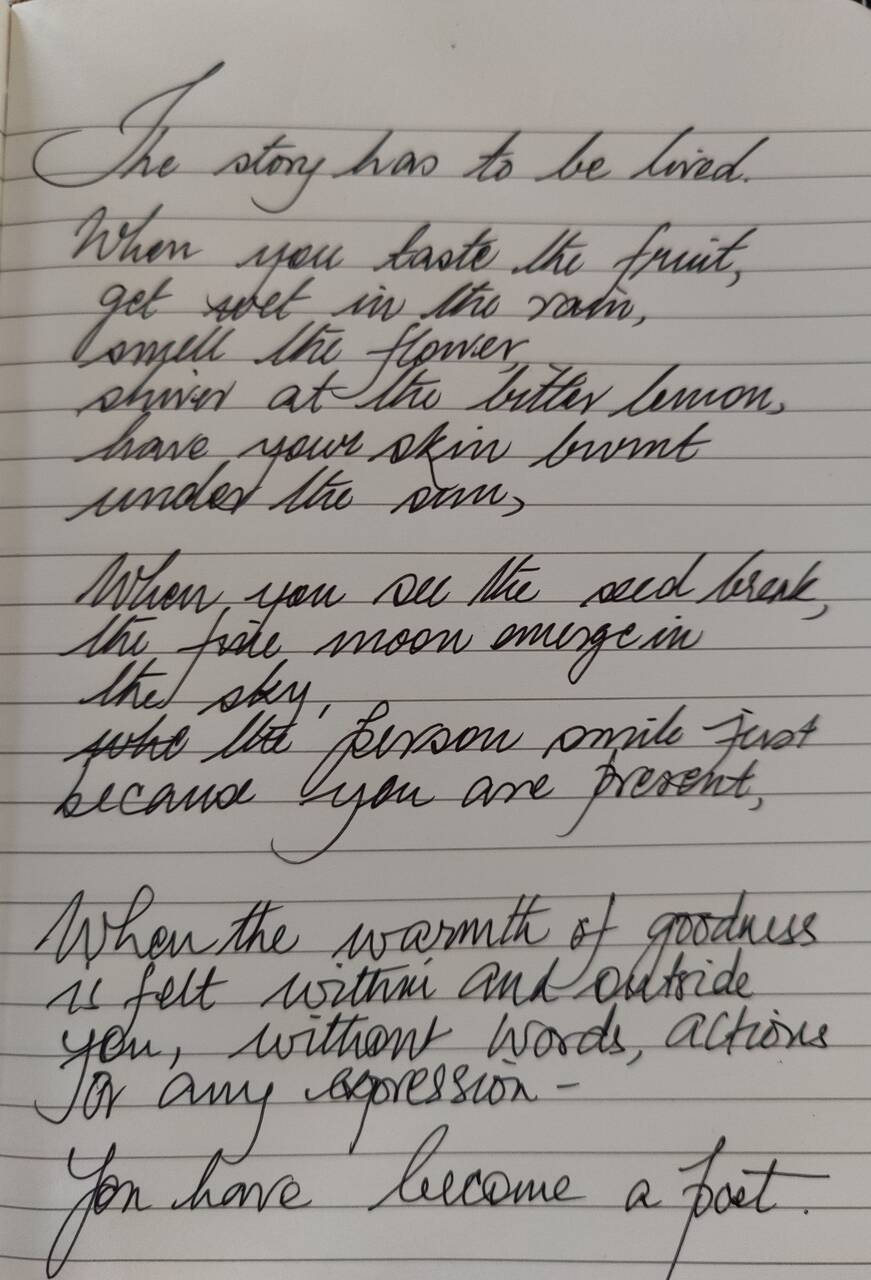 The story has to be lived.
When you taste the fruit,
get wet in the rain,
smell the flower,
shiver at the bitter lemon,
have your skin burnt
under the sun,
When you see the seed break,
the moon emerge in
the sky,
the person smile just
because you are present,
When the warmth of goodness
is felt within and outside
you, without words, actions
or any expression -
You have become a poet.